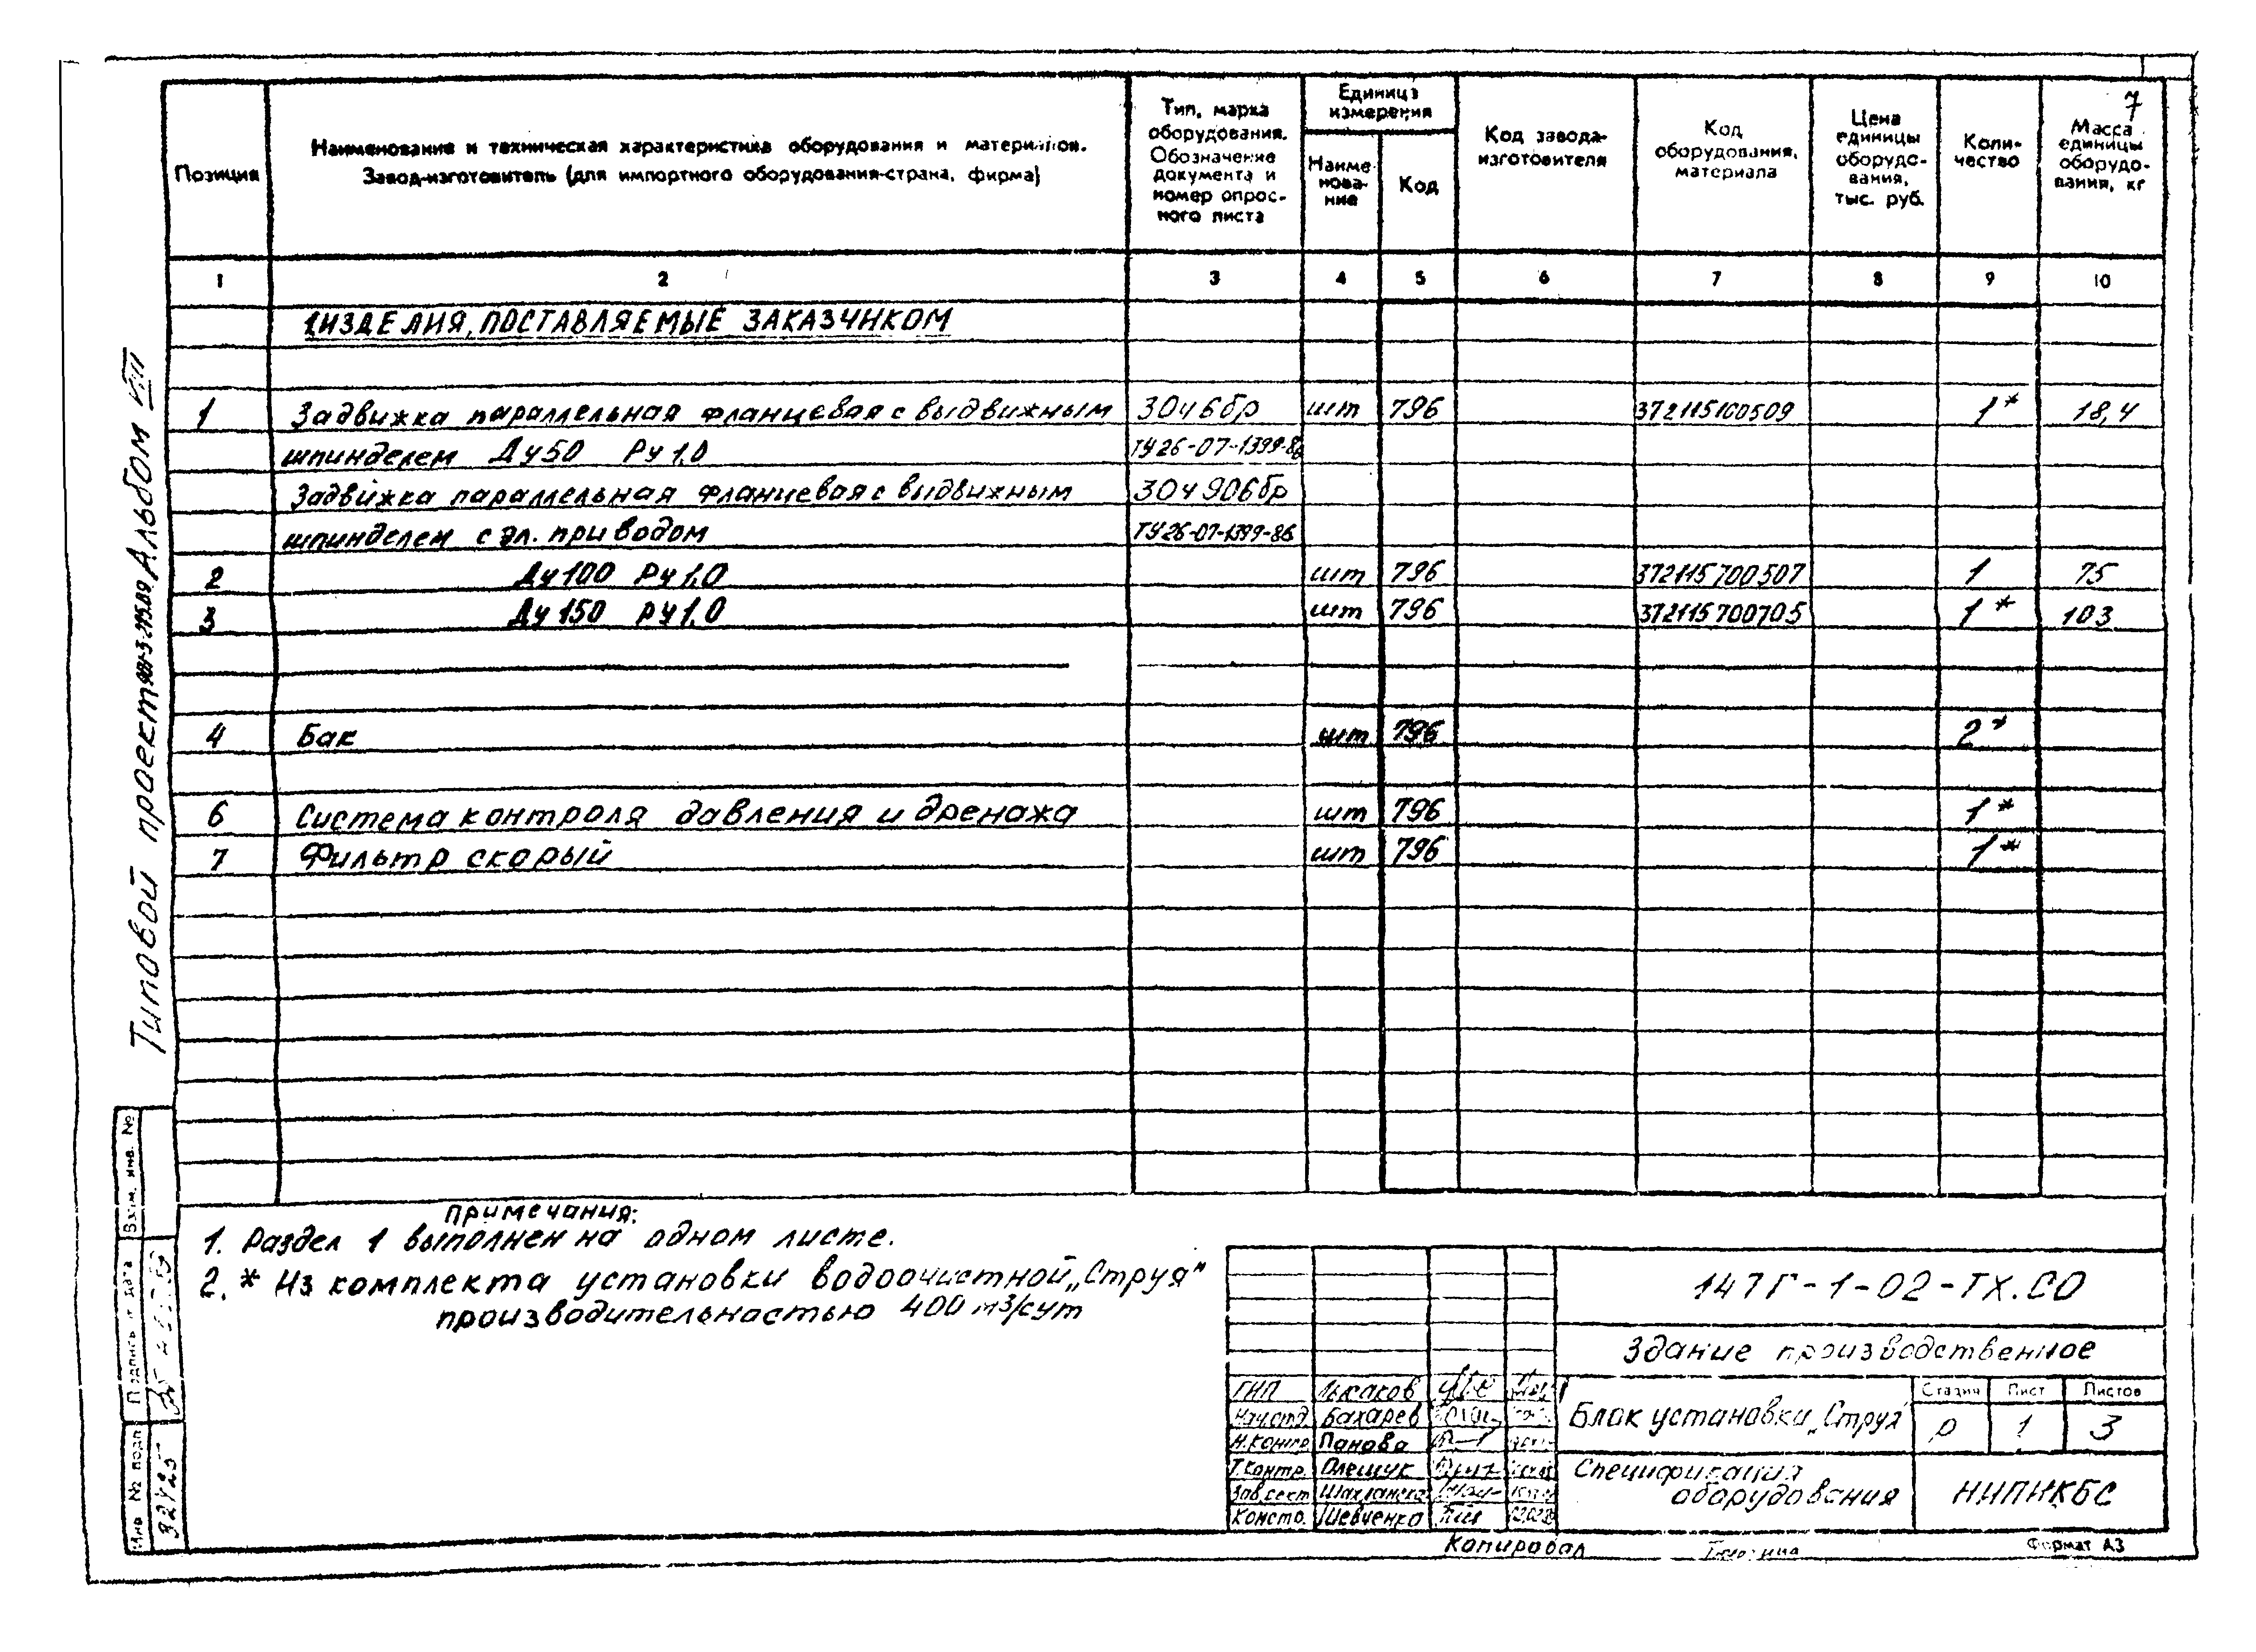 7
Позиция
Наименование и техническая характеристика оборудования и материалов.
Завод-изготовитель (для импортного оборудования-страна, фирма)
Тип, марка
оборудования.
Обозначение
документа и
номер опрос-
ного листа
Единица
измерения
Наиме-
нова-
ние
Код
Код завода-
изготовителя
Код
оборудования,
материала
Цена
единицы
оборудо-
вания,
тыс. руб.
Коли-
чество
Масса
единицы
оборудо-
вания, кг
1 2 3 4 5 6 7 8 9 10
1.ИЗДЕЛИЯ, ПОСТАВЛЯЕМЫЕ ЗАКАЗЧИКОМ
1 Задвижка параллельная фланцевая с выдвижным 30ч6бр шт 796 372115100509 1* 18,4
шпинделем Ду50 Ру1,0 ТУ26-07-1399-86
Задвижка параллельная фланцевая с выдвижным 30ч906бр
шпинделем с эл. приводом ТУ26-07-1399-86
2 Ду100 Ру1,0 шт 796 372115700507 1 75
3 Ду150 Ру1,0 шт 796 372115700705 1* 103
4 Бак шт 796 2*
6 Система контроля давления и дренажа шт 796 1*
7 Фильтр скорый шт 796 1*
Примечания:
1. Раздел 1 выполнен на одном листе.
2. * Из комплекта установки водоочистной „Струя"
производительностью 400 м3/сут
Типовой проект 901-3-275.89 Альбом VIII
Взам. инв. №
Подпись и дата
Инв № подл
32425
147Г-1-02-ТХ.СО
Здание производственное
ГИП Лысаков
Нач.отд Бахарев
Н.контр Панова
Т.контр. Олещук
Зав.сект
Констр. Шевченко
Блок установки „Струя"
Стадия Лист Листов
Р 1 3
Спецификация
оборудования
НИПИКБС
Копировал
Формат А3